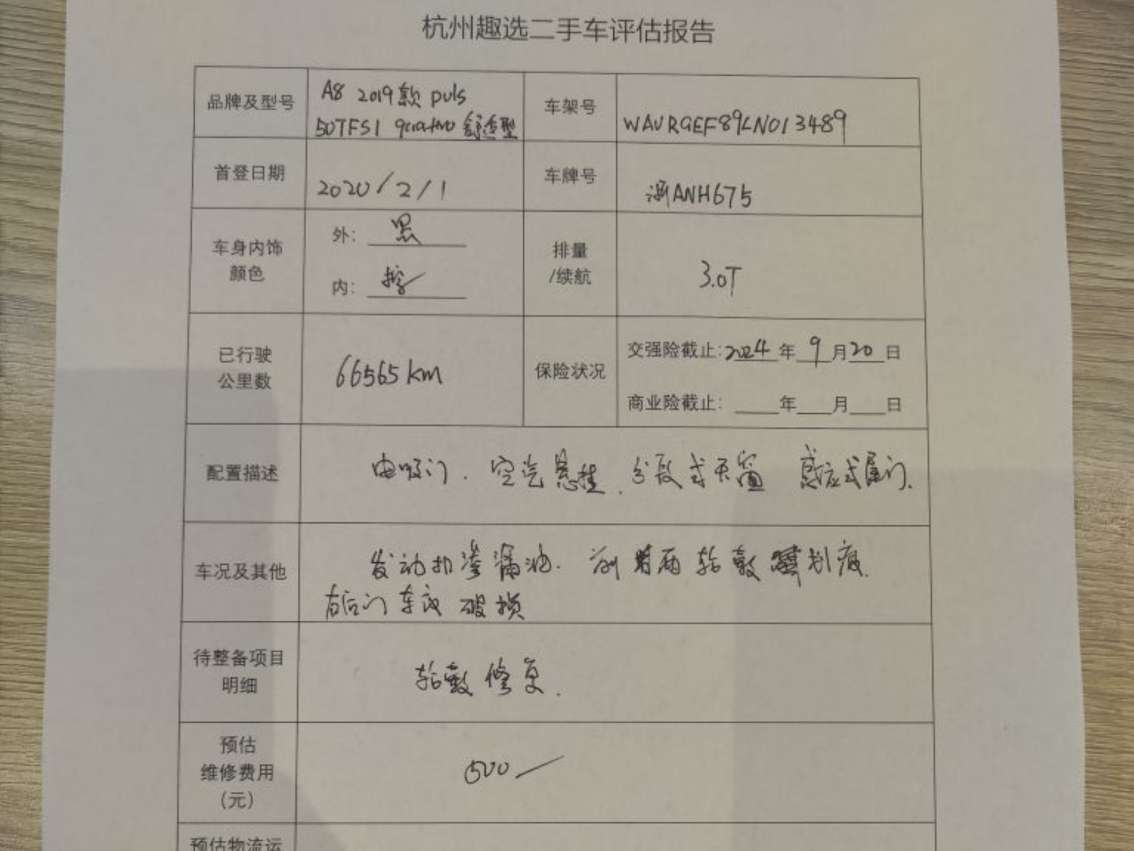 杭州趣选二手车评估报告
品牌及型号 A8 2019款 puls 50TFSI quattro 舒适型 车架号 WAURGEF89LN013489
首登日期 2020/2/1 车牌号 浙ANH675
车身内饰颜色 外: 黑 内: 排量/续航 3.0T
已行驶公里数 66565km 保险状况 交强险截止:2024年9月20日
商业险截止: 年 月 日
配置描述 电吸门. 空气悬挂. 分段式天窗 感应式尾门.
车况及其他 发动机渗漏油. 前 两轮毂 划痕.
右后门车 破损
待整备项目明细 轮毂修复.
预估维修费用(元) 500
预估物流运